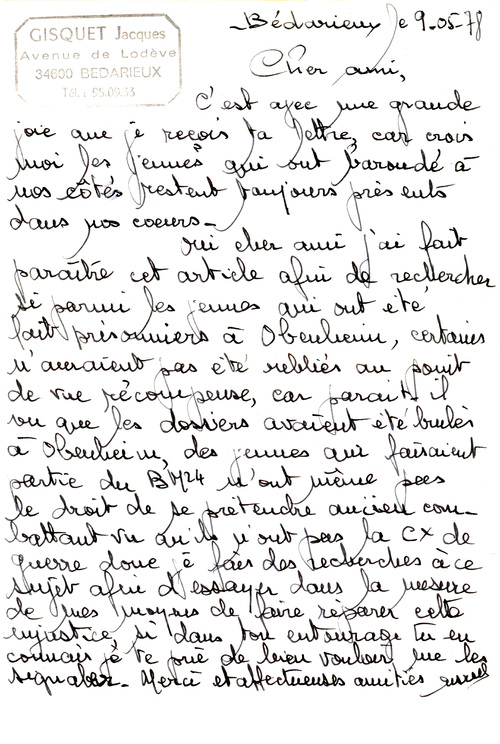 GISQUET Jacques
Avenue de Lodève
34600 BEDARIEUX
Tél : 95.09.33
Bédarieux le 9-05-78
Cher ami,
C'est avec une grande
joie que je reçois ta lettre, car crois
moi les jeunes qui ont baroudé à
nos côtés restent toujours présents
dans nos coeurs-
Oui cher ami j'ai fait
paraître cet article afin de rechercher
si parmi les jeunes qui ont été
fait prisonniers à Obenheim, certains
n'auraient pas été oubliés au point
de vue récompense, car parait il
vu que les dossiers avaient été brulés
à Obenheim, des jeunes qui faisaient
partie du BM24 n'ont même pas
le droit de se prétendre ancien com-
battant vu qu'ils n'ont pas la CX de
guerre donc je fais des recherches à ce
sujet afin d'essayer dans la mesure
de mes moyens de faire réparer cette
injustice, si dans ton entourage tu en
connais je te prie de bien vouloir me les
signaler- Merci et affectueuses amitiés